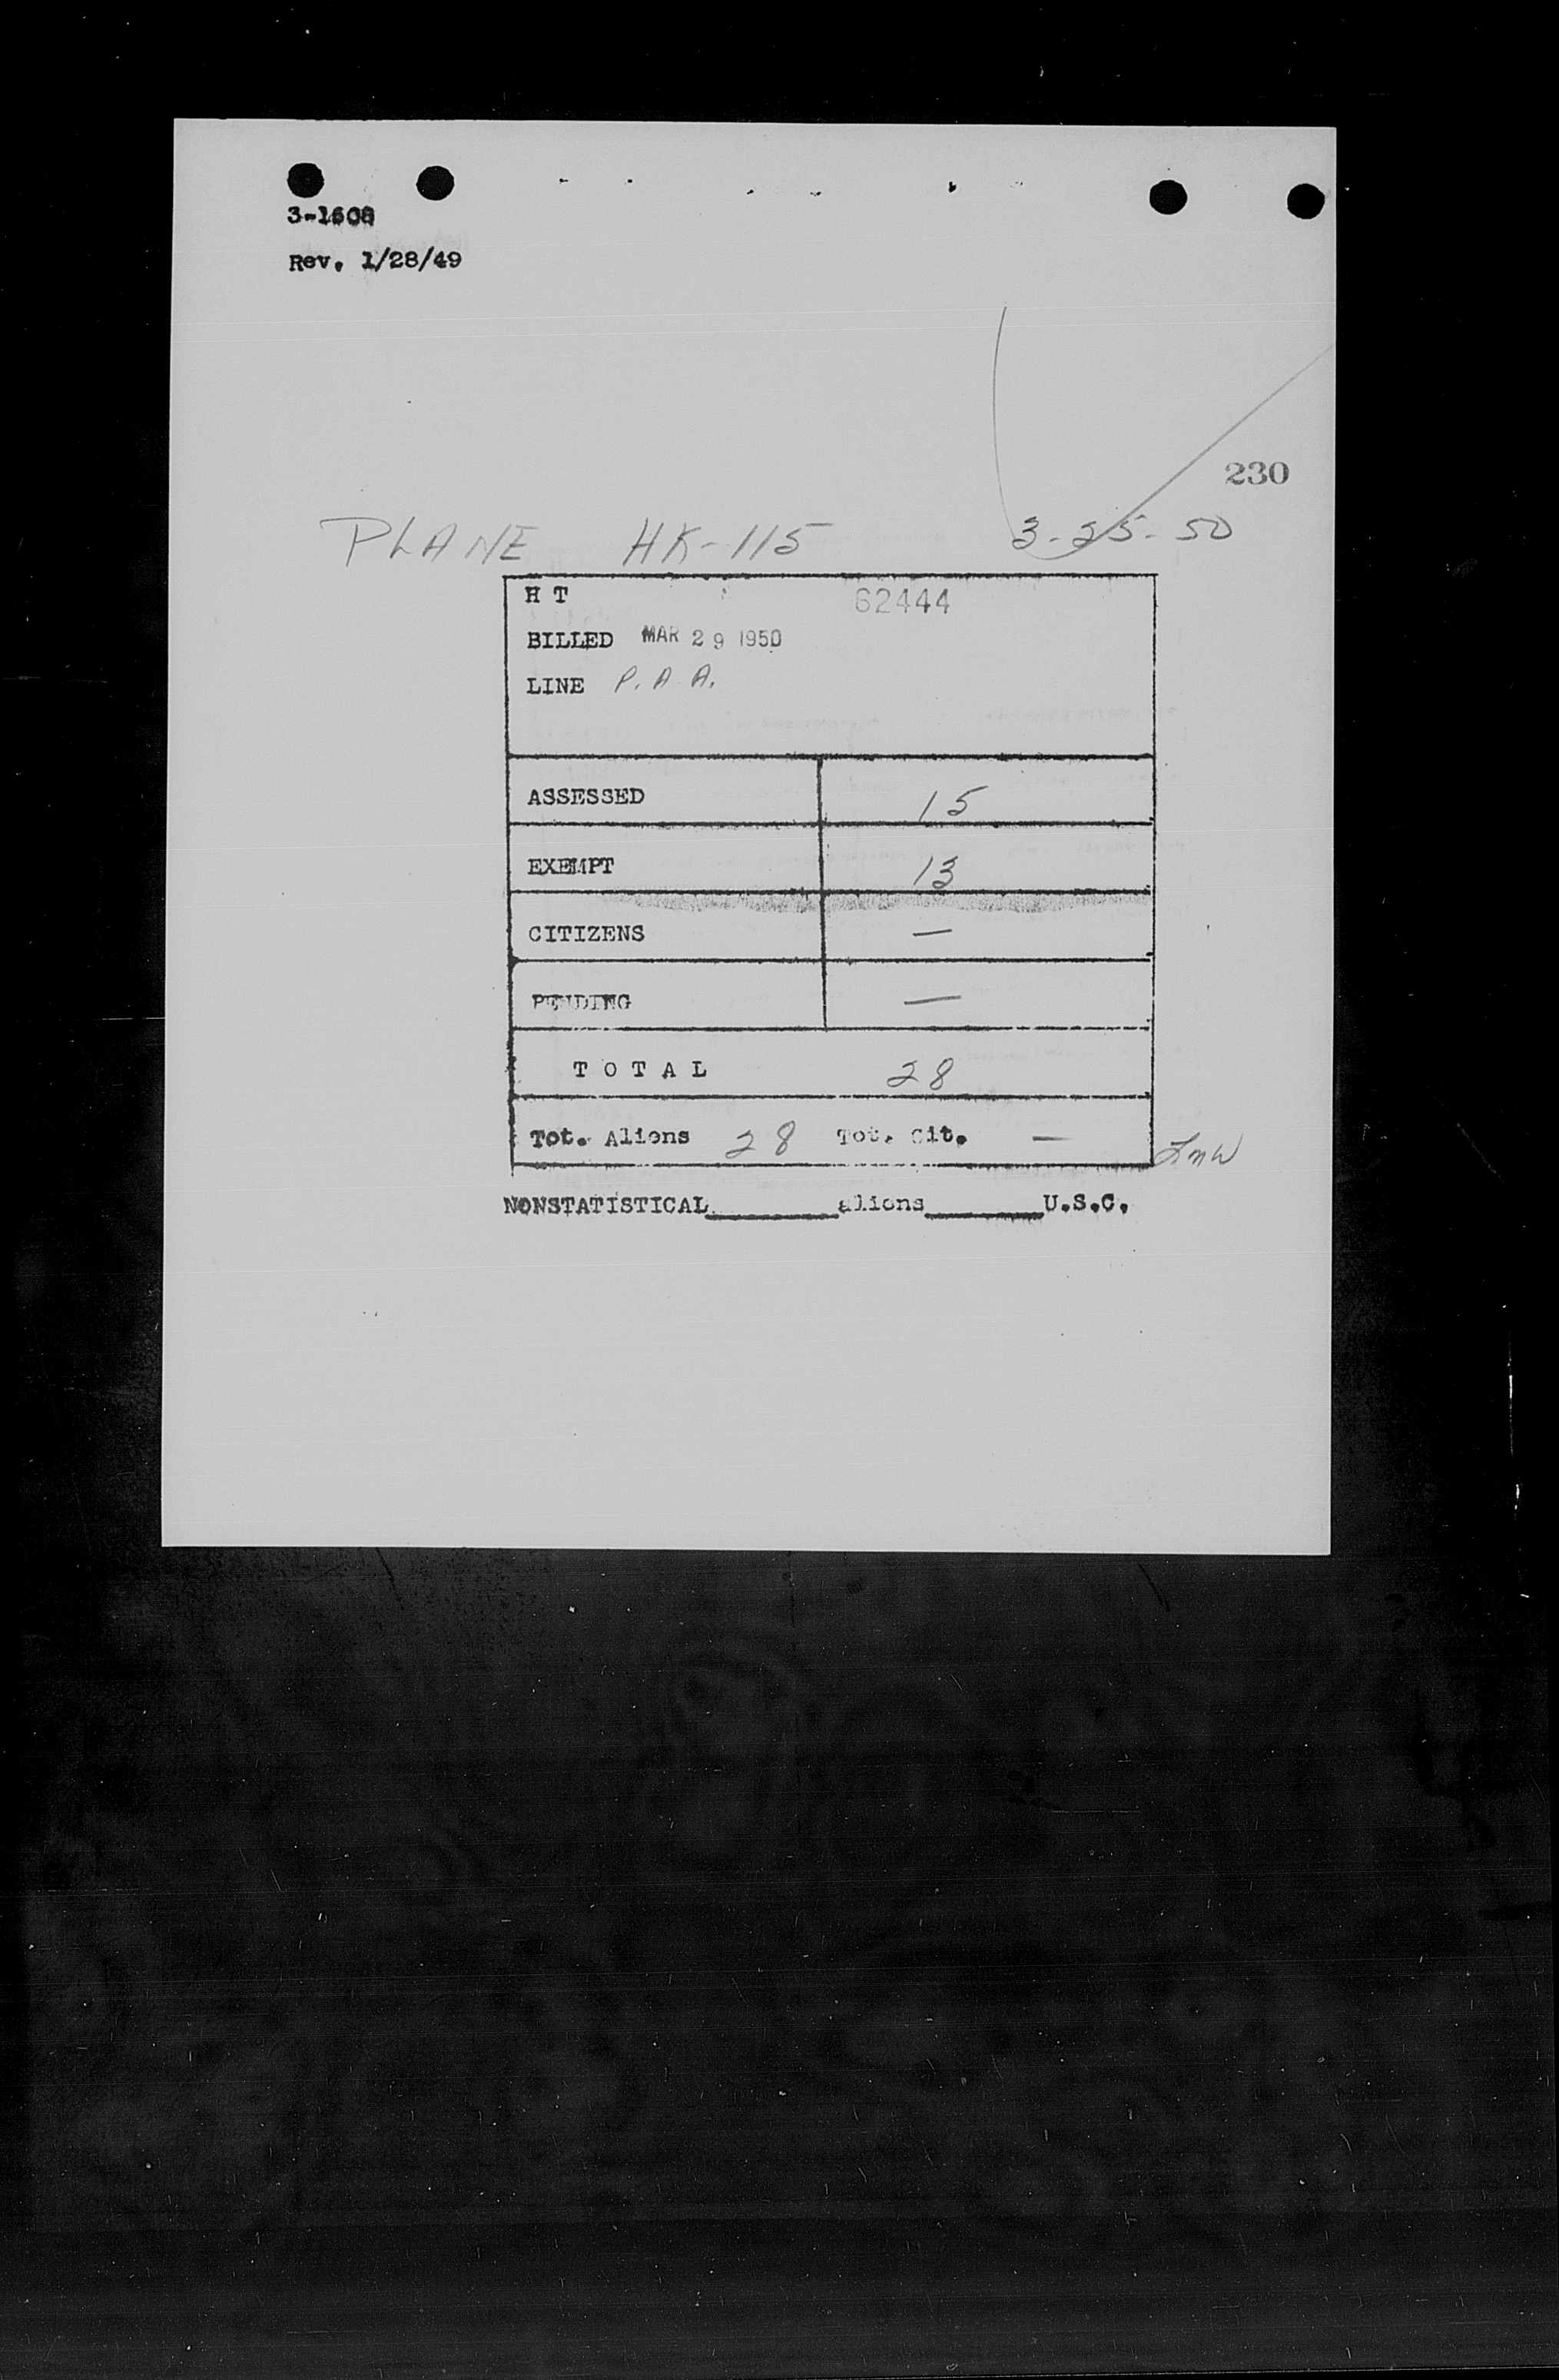 3-1608
Rev. 1/28/49
230
PLANE HK-115 3-25-50
H T 62444
BILLED MAR 29 1950
LINE P. A A.
ASSESSED 15
EXEMPT 13
CITIZENS —
PENDING —
T O T A L 28
Tot. Aliens 28 Tot. Cit. —
LmW
NONSTATISTICAL________aliens_______U.S.C.